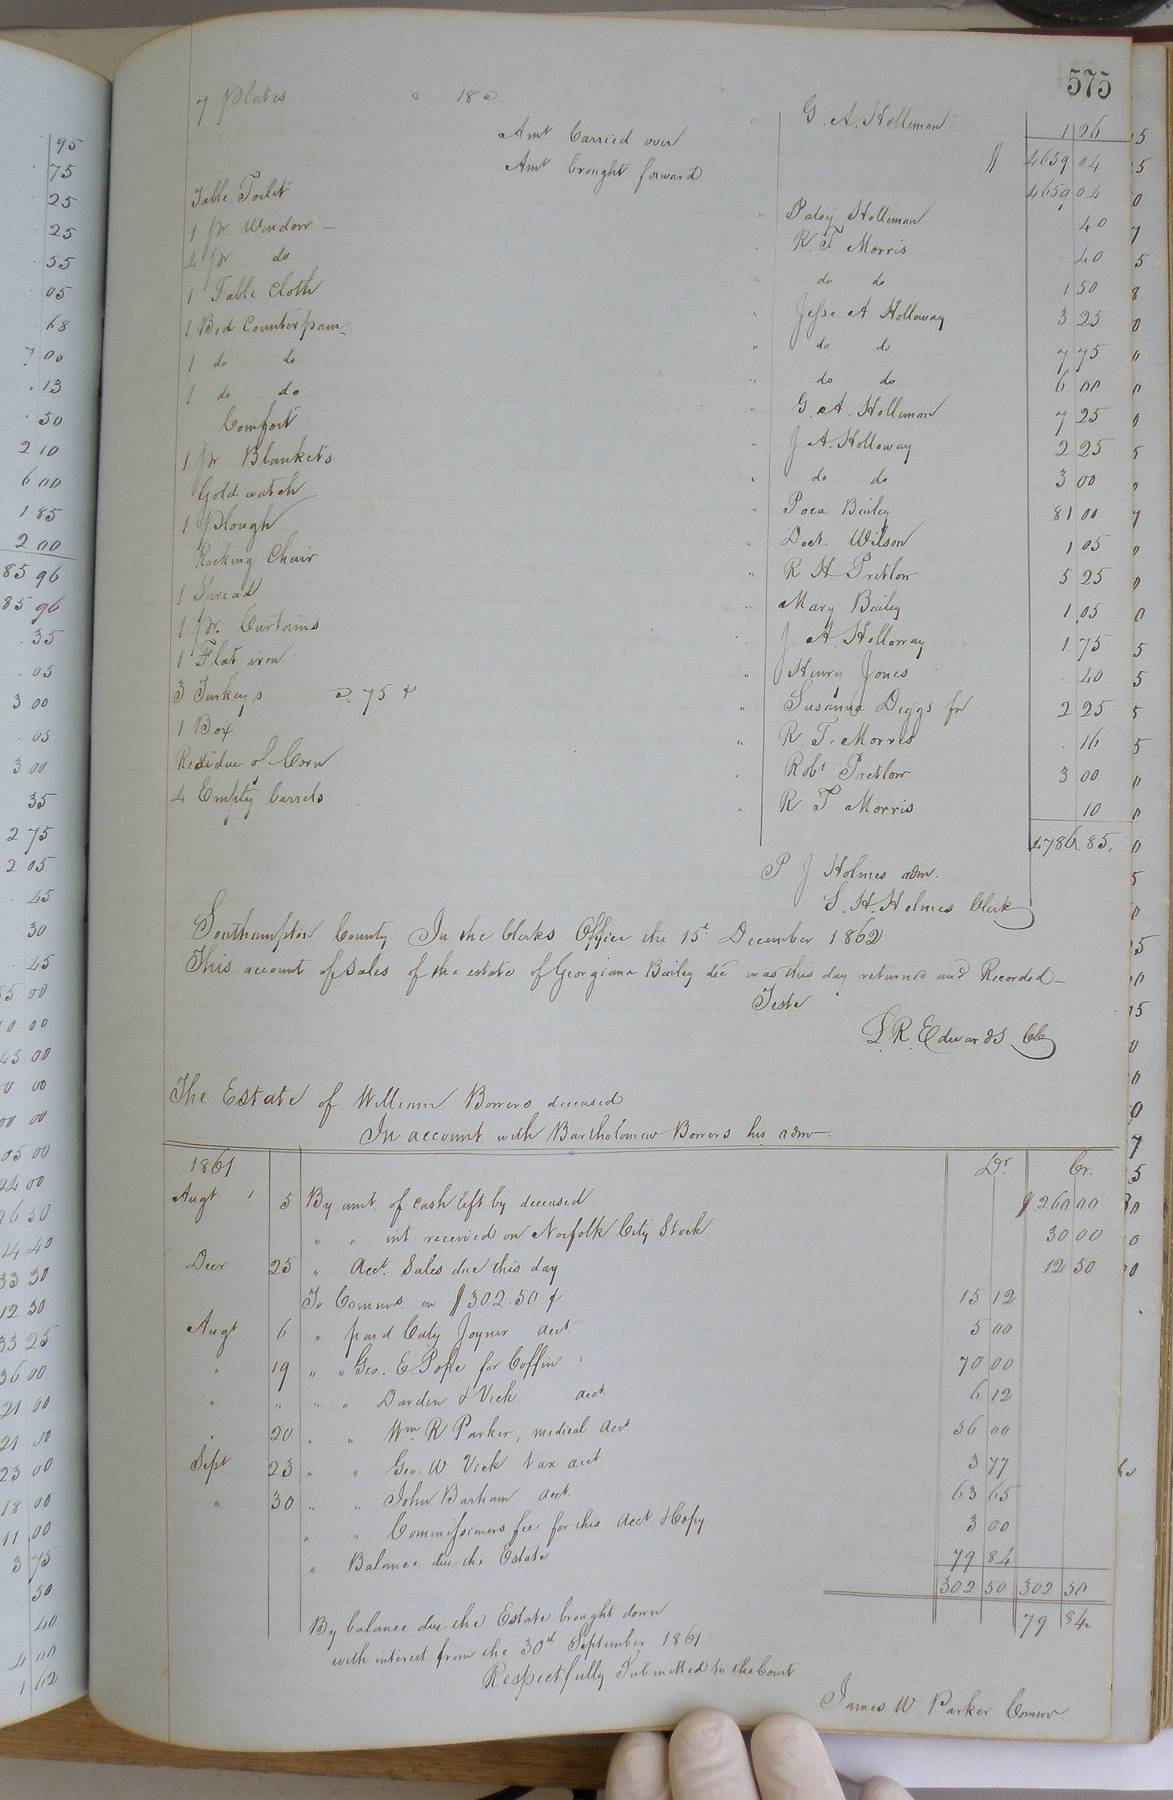 575
7 Plates @ 18c " G. A. Holleman 1 26
Amt Carried over $ 4659 04
Amt brought forward 4659 04
Table Toilet " Patsy Holleman 40
1 pr Window " R. T. Morris 40
4 pr do " do do 1 50
1 Table Cloth " Jesse A Holloway 3 25
1 Bed Counterpain " do do 7 75
1 do do " do do 6 00
1 do do " G. A. Holleman 7 25
Comfort " J A. Holloway 2 25
1 pr Blankets " do do 3 00
Gold watch " Poca Bailey 81 00
1 Plough " Doct. Wilson 1 05
Rocking Chair " R H Pretlow 5 25
1 Spread " Mary Bailey 1 05
1 pr. Curtains " J A. Holloway 1 75
1 Flat iron " Henry Jones 40
3 Turkeys @ 75 ¢ " Susanna Diggs 2 25
1 Box " R. T. Morris 16
Residue of Corn " Robt Pretlow 3 00
4 Empty barrels " R T Morris 10
4786 85.
P J Holmes adm.
S. H. Holmes Clerk
Southampton County In the Clerks Office the 15t December 1862
This account of sales of the estate of Georgiana Bailey dec was this day returned and Recorded
Teste
L. R. Edwards Clk
The Estate of William Bowers deceased
In account with Bartholomew Bowers his adm
1861 Dr. Cr.
Augt 5 By amt of cash left by deceased $ 260 00
" " int received on Norfolk City Stock 30 00
Decr 25 " Acct. Sales due this day 12 50
To Comms. on $302.50 ¢ 15 12
Augt 6 " paid Caty Joyner acct 5 00
" 19 " " Geo. E Pope for Coffin 70 00
" " " " Darden & Vick acct 6 12
" 20 " " Wm R. Parker, medical acct 56 00
Sept 23 " " Geo. W Vick tax acct 3 77
" 30 " " John Barham acct. 63 65
" " Commissioners fee for this acct & Copy 3 00
" Balance due the Estate 79 84
302 50 302 50
By balance due the Estate brought down 79 84
with interest from the 30th September 1861
Respectfully Submitted to the Court
James W Parker Commr
95
75
25
25
55
05
68
7 00
13
50
2 10
6 00
1 85
2 00
85 96
85 96
35
05
3 00
05
3 00
35
2 75
2 05
45
30
45